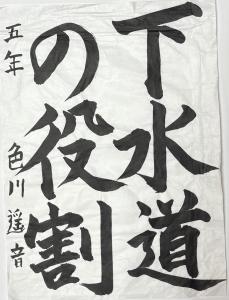 下水道
の役割
五年 色川遥音